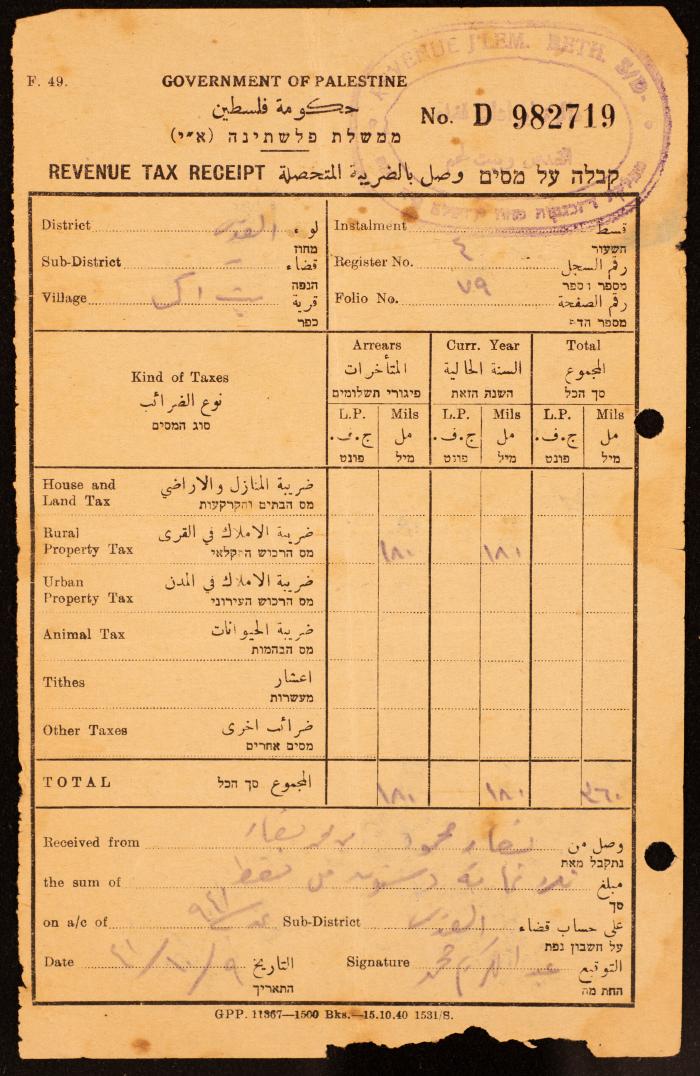 REVENUE J'LEM. BETH. S/D.
F. 49.
GOVERNMENT OF PALESTINE
حكومة فلسطين
ממשלת פלשתינה (א״י)
No. D 982719
REVENUE TAX RECEIPT وصل بالضريبة المتحصلة קבלה על מסים
District القدس لواء
מחוז
Sub-District قضاء
הנפה
Village قرية
כפר
Instalment قسط
השעור
Register No. ٤ رقم السجل
מספר הספר
Folio No. ٧٩ رقم الصفحة
מספר הדף
Kind of Taxes
نوع الضرائب
סוג המסים
Arrears Curr. Year Total
المتأخرات السنة الحالية المجموع
פיגורי תשלומים השנה הזאת סך הכל
L.P. Mils L.P. Mils L.P. Mils
ج.ف. مل ج.ف. مل ج.ف. مل
פונט מיל פונט מיל פונט מיל
House and Land Tax ضريبة المنازل والاراضي
מס הבתים והקרקעות
Rural Property Tax ضريبة الاملاك في القرى
מס הרכוש החקלאי
١٨٠ ١٨٠
Urban Property Tax ضريبة الاملاك في المدن
מס הרכוש העירוני
Animal Tax ضريبة الحيوانات
מס הבהמות
Tithes اعشار
מעשרות
Other Taxes ضرائب اخرى
מסים אחרים
TOTAL المجموع סך הכל
١٨٠ ١٨٠ ٣٦٠
Received from وصل من
נתקבל מאת
the sum of مبلغ
סך
on a/c of Sub-District القدس على حساب قضاء
על חשבון נפת
Date التاريخ
התאריך
Signature التوقيع
החתימה
GPP. 11367—1500 Bks.—15.10.40 1531/S.